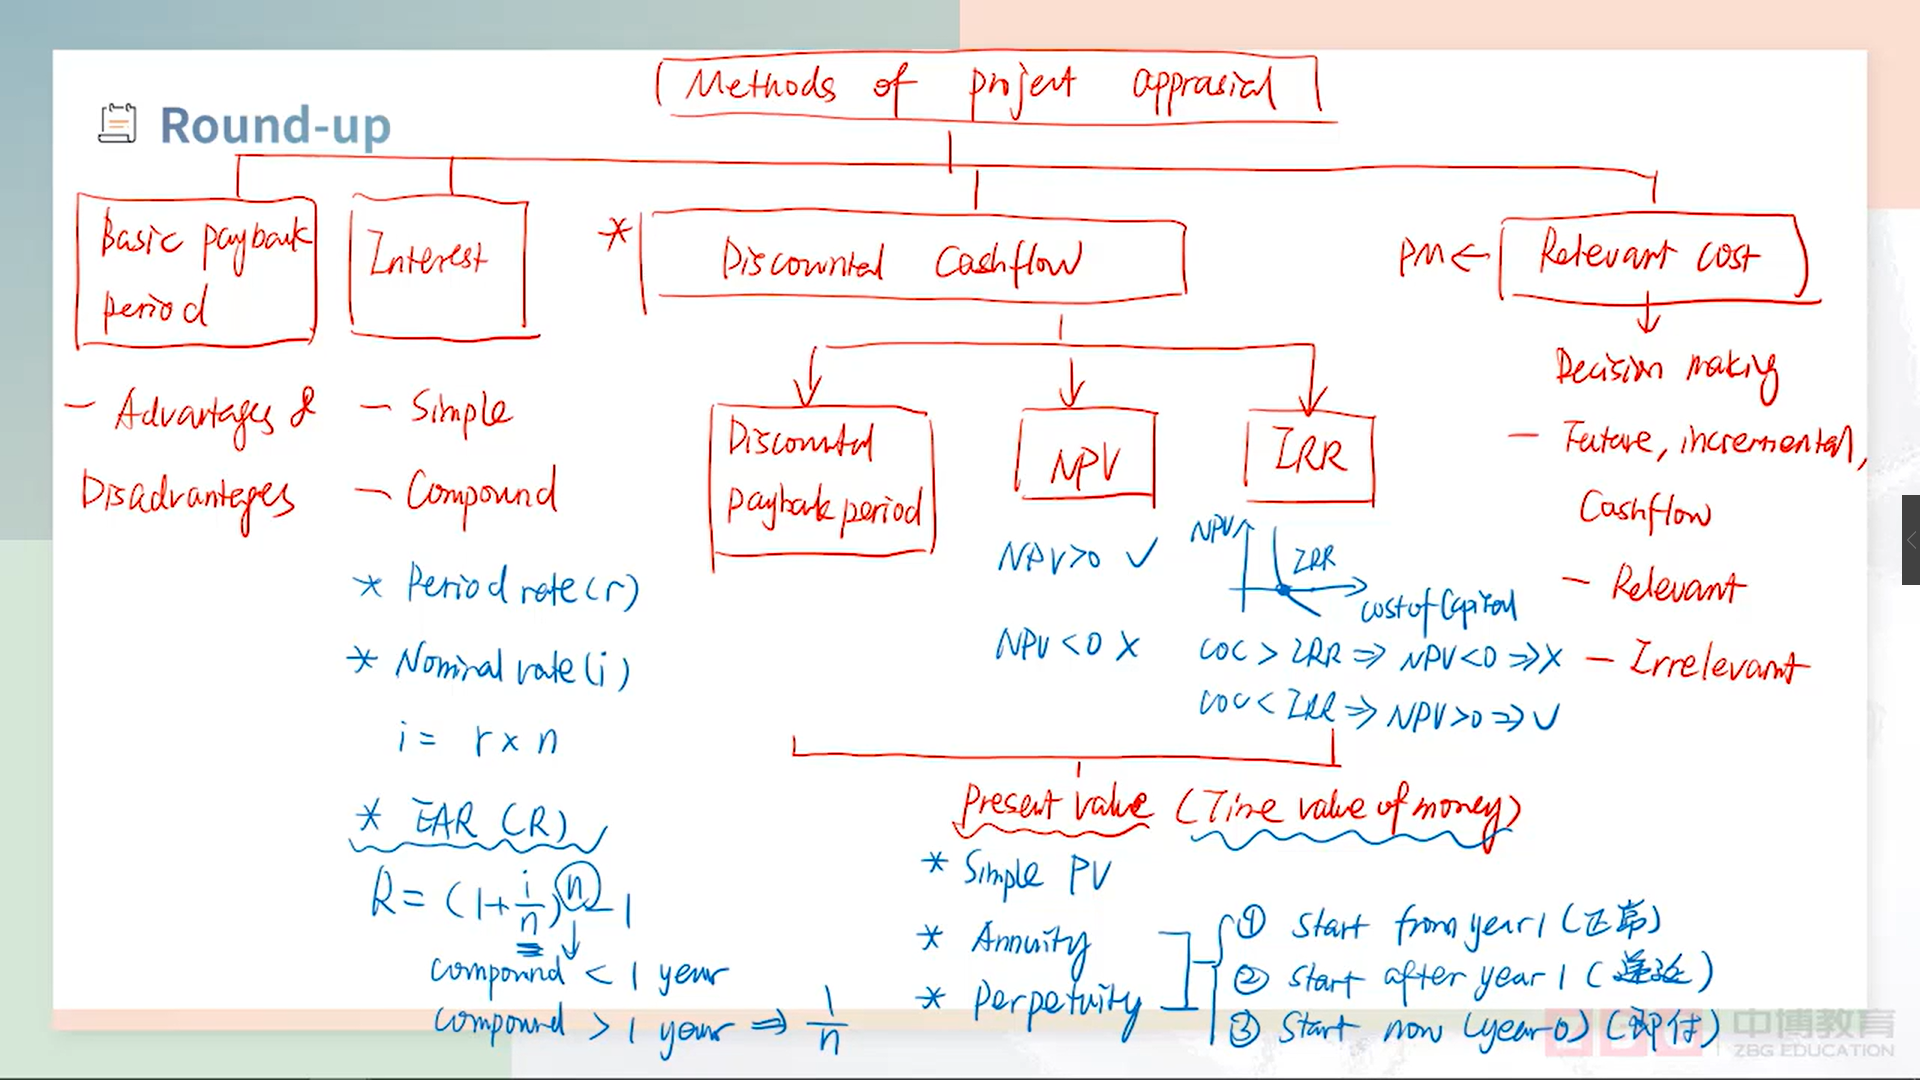 Methods of project apprasial
Round-up
Basic payback
period
- Advantages &
Disadvantages
Interest
- Simple
- Compound
* Period rate (r)
* Nominal rate (i)
i = r x n
* EAR (R)
R = (1+i/n)^n - 1
compound < 1 year
compound > 1 year ⇒ 1/n
* Discounted Cashflow
Discounted
payback period
NPV
NPV>0 ✓
NPV<0 X
IRR
NPV
IRR
cost of Capital
COC > IRR ⇒ NPV<0 ⇒ X
COC < IRR ⇒ NPV>0 ⇒ ✓
Present value (Time value of money)
* Simple PV
* Annuity
* Perpetuity
① Start from year 1 (正常)
② Start after year 1 (递延)
③ Start now (year 0) (即付)
PM ← Relevant cost
Decision making
- Future, incremental,
Cashflow
- Relevant
- Irrelevant
中博教育
ZBG EDUCATION